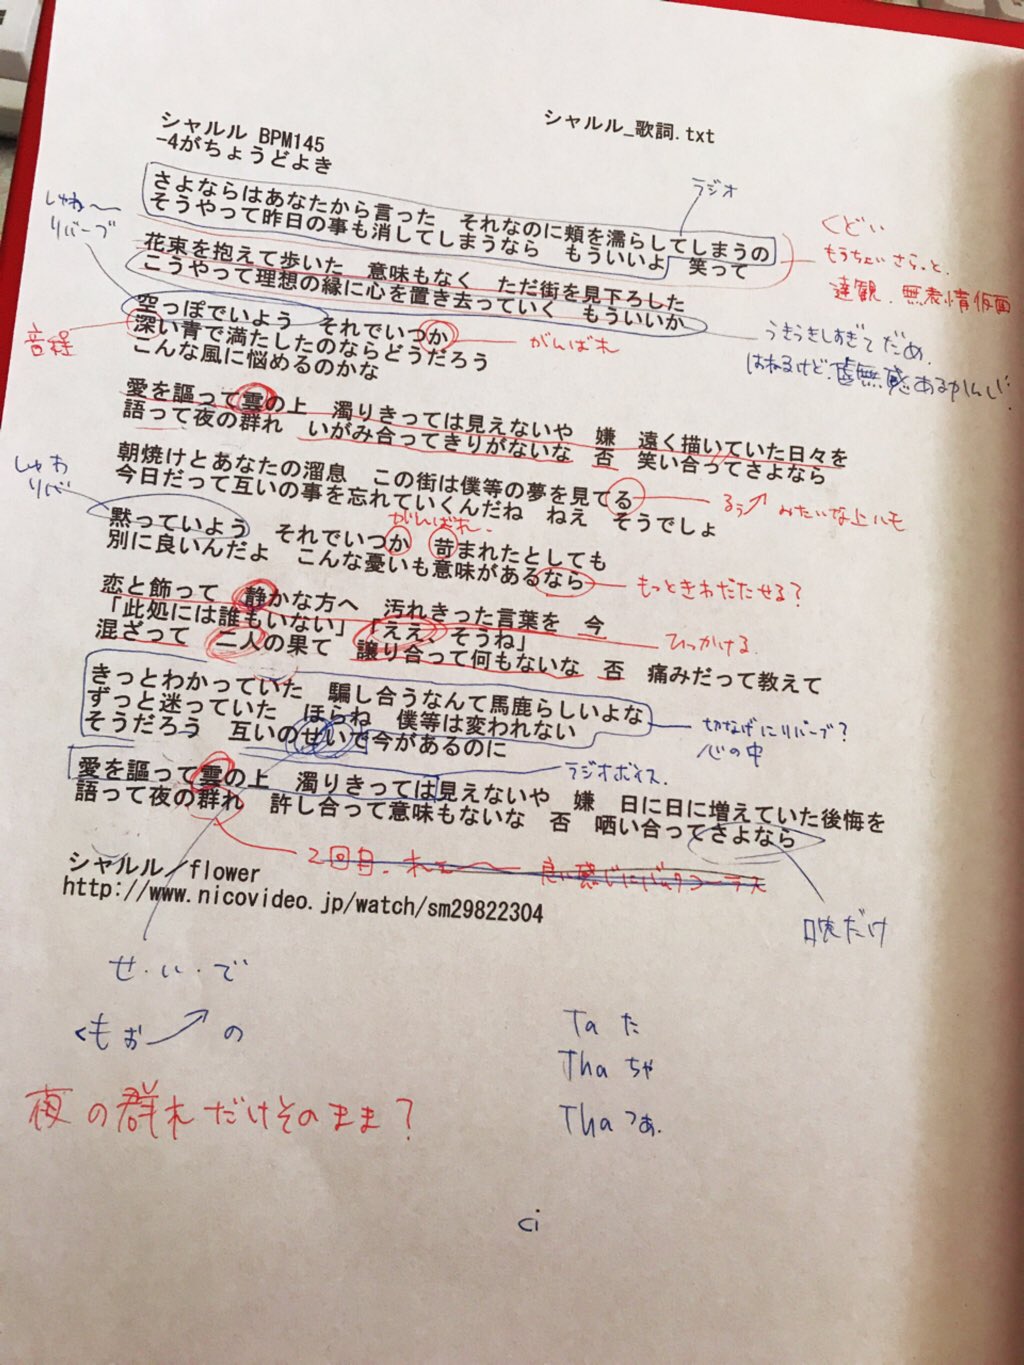 シャルル_歌詞.txt
シャルル BPM145
-4がちょうどよき
ラジオ
さよならはあなたから言った　それなのに頬を濡らしてしまうの
そうやって昨日の事も消してしまうなら　もういいよ　笑って
くどい
もうちょいさらっと、
達観、無表情仮面
しゃわ〜
リバーブ
花束を抱えて歩いた　意味もなく　ただ街を見下ろした
こうやって理想の縁に心を置き去っていく　もういいか
うきうきしすぎてだめ、
はねるけど、虚無感あるかんじ
空っぽでいよう　それでいつか
がんばれ
音程
深い青で満たしたのならどうだろう
こんな風に悩めるのかな
愛を謳って雲の上　濁りきっては見えないや　嫌　遠く描いていた日々を
語って夜の群れ　いがみ合ってきりがないな　否　笑い合ってさよなら
朝焼けとあなたの溜息　この街は僕等の夢を見てる
今日だって互いの事を忘れていくんだね　ねえ　そうでしょ
るぅ↗ みたいな上ハモ
しゃわ
リバ
がんばれ、
黙っていよう　それでいつか　苛まれたとしても
別に良いんだよ　こんな憂いも意味があるなら
もっときわだたせる？
恋と飾って　静かな方へ　汚れきった言葉を　今
「此処には誰もいない」「ええ、そうね」
ひっかける
混ざって　二人の果て　譲り合って何もないな　否　痛みだって教えて
きっとわかっていた　騙し合うなんて馬鹿らしいよな
ずっと迷っていた　ほらね　僕等は変われない
そうだろう　互いのせいで今があるのに
切なげにリバーブ？
心の中
ラジオボイス、
愛を謳って雲の上　濁りきっては見えないや　嫌　日に日に増えていた後悔を
語って夜の群れ　許し合って意味もないな　否　哂い合ってさよなら
2回目、
良い感じにバックコーラス
シャルル／flower
http://www.nicovideo.jp/watch/sm29822304
だけ
せ・い・で
くもぉ↗の
夜の群れだけそのまま？
Ta た
Tha ちゃ
Tha つぁ.
ci